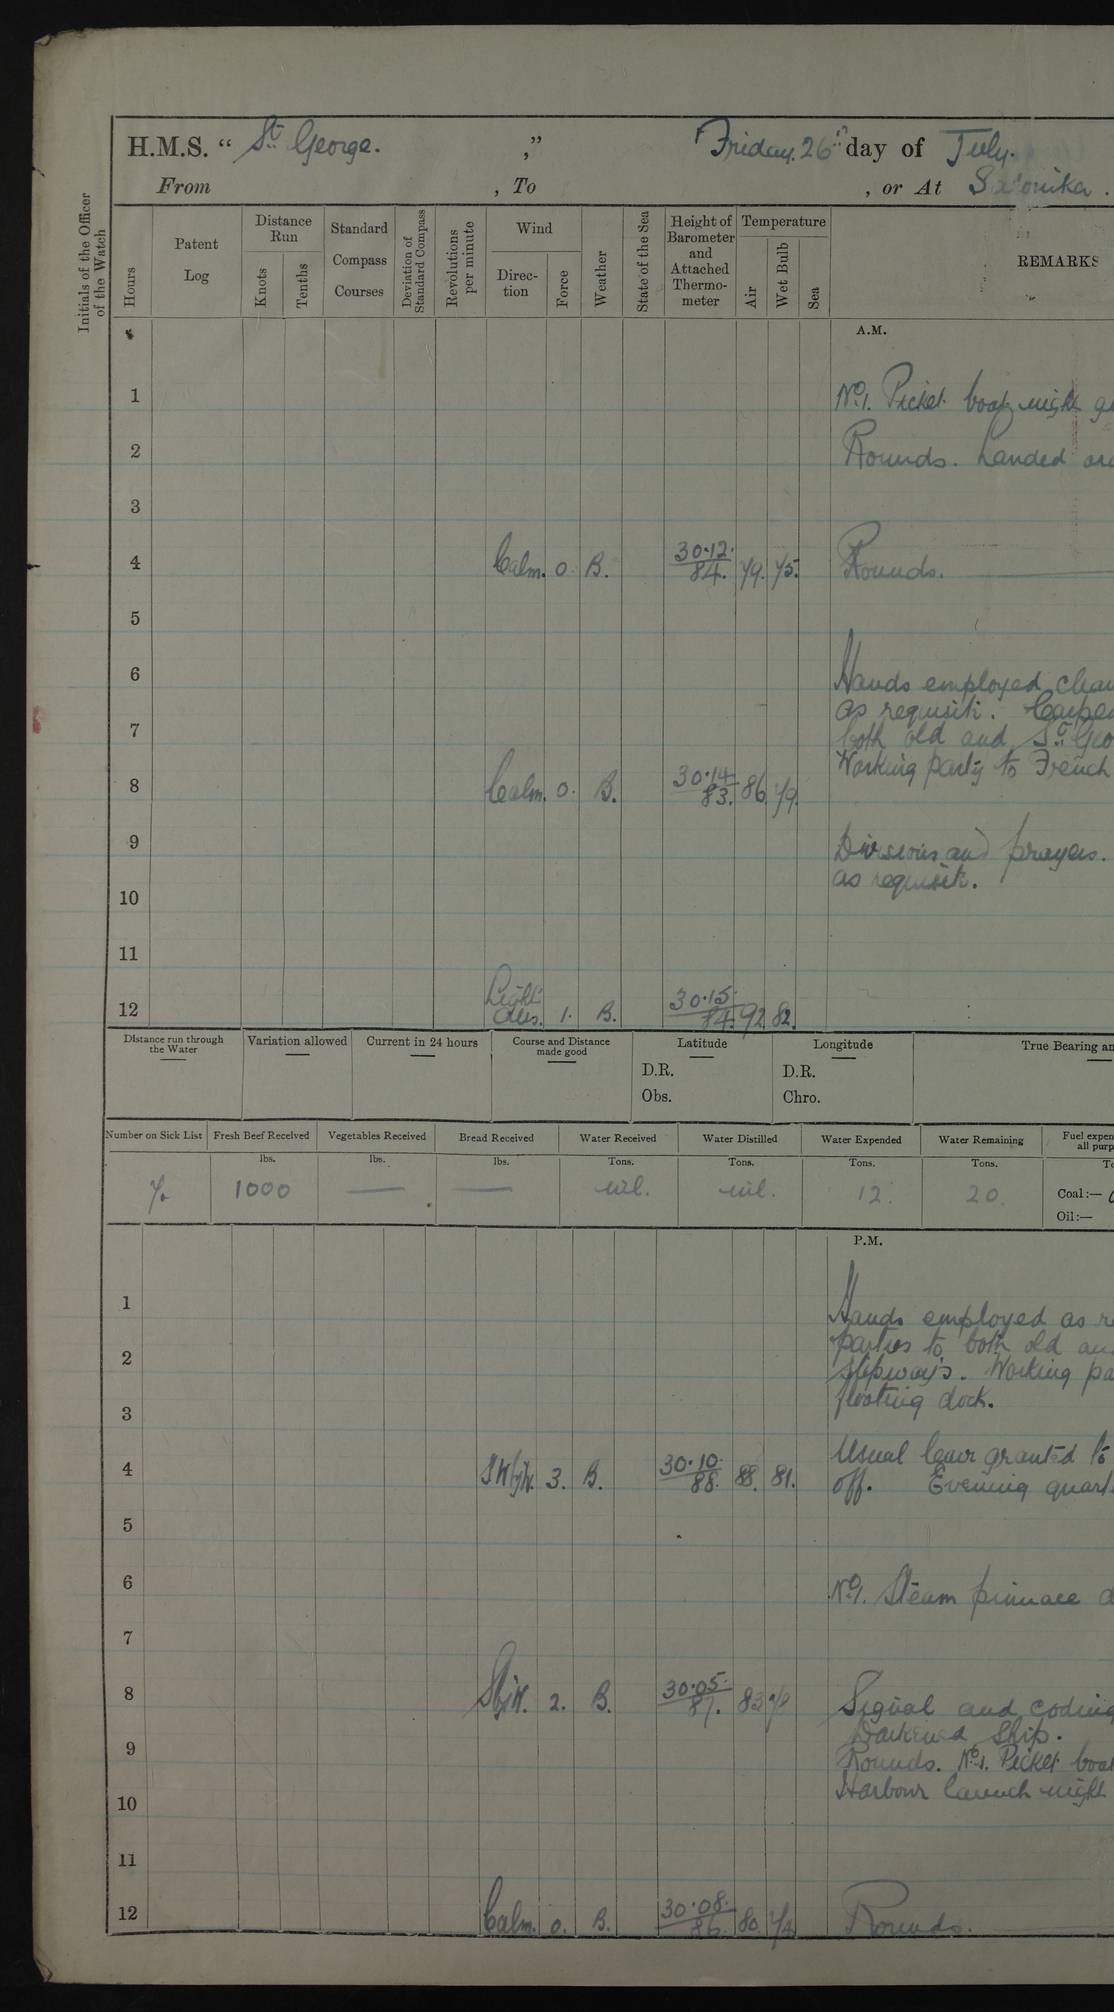 H.M.S. “ St. George. ” Friday. 26th day of July.
From , To , or At Salonika.
Initials of the Officer of the Watch
Hours
Patent Log
Distance Run
Knots
Tenths
Standard Compass Courses
Deviation of Standard Compass
Revolutions per minute
Wind
Direc-tion
Force
Weather
State of the Sea
Height of Barometer and Attached Thermo-meter
Temperature
Air
Wet Bulb
Sea
REMARKS
A.M.
1 No. 1. Picket boat night
2 Rounds. Landed
3
4 Calm. 0. B. 30.12. 84. 79. 75. Rounds.
5
6 Hands employed
as requisite.
7 both old and St. Geo
Working party to French
8 Calm. 0. B. 30.14 83. 86 79.
9 Divisions and prayers.
as requisite.
10
11
12 Light Airs. 1. B. 30.15. 84. 92 82.
Distance run through the Water
Variation allowed
Current in 24 hours
Course and Distance made good
Latitude
D.R.
Obs.
Longitude
D.R.
Chro.
True Bearing an
Number on Sick List
Fresh Beef Received
Vegetables Received
Bread Received
Water Received
Water Distilled
Water Expended
Water Remaining
Fuel expen
all purp
lbs. lbs. lbs. Tons. Tons. Tons. Tons. To
1000 — — nil. nil. 12. 20.
Coal:—
Oil:—
P.M.
1 Hands employed as
2 parties to both old
slipways. Working
3 floating dock.
Usual leave granted to
4 3. B. 30.10. 88. 88. 81. off. Evening
5
6 No. 1. Steam pinnace
7
8 2. B. 30.05. 87. 83 Signal and coding
Darkened ship.
9 Rounds. No. 1. Picket boat
10 Harbour launch night
11
12 Calm. 0. B. 30.08. 86. 80. Rounds.